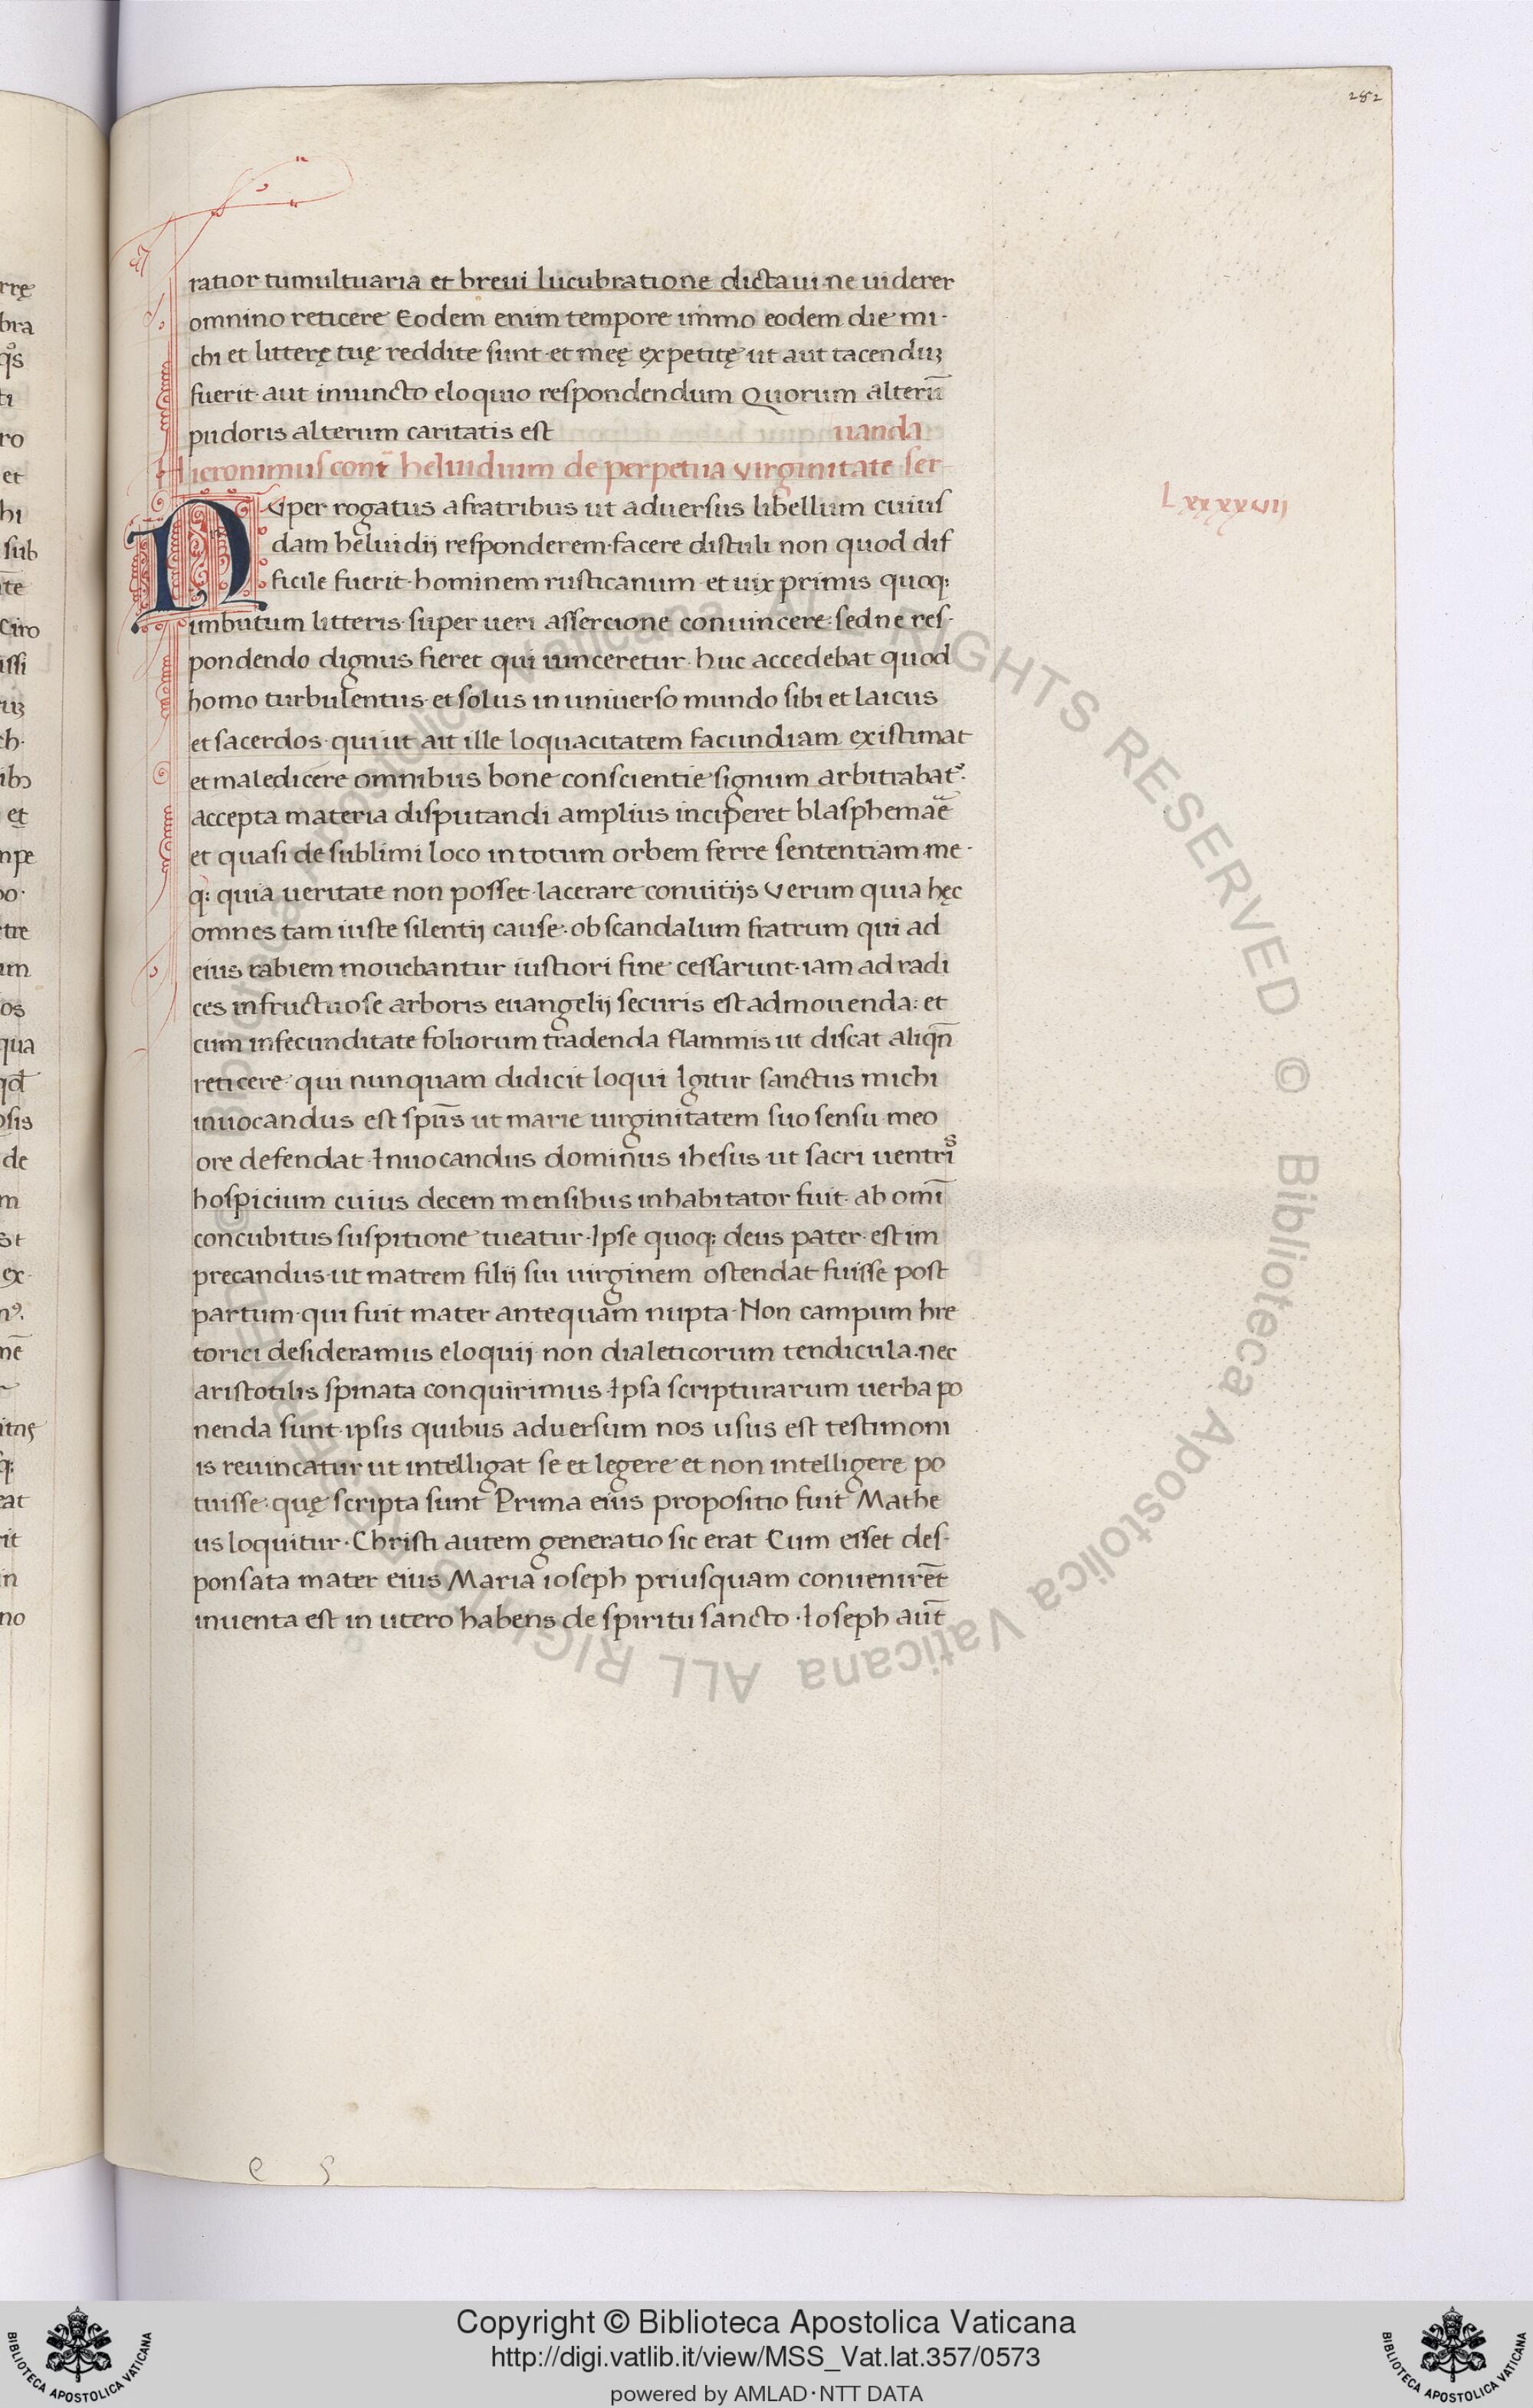 282
ratior tumultuaria et breui lucubratione dictaui·ne uiderer
omnino reticere Eodem enim tempore immo eodem die mi·
chi et litterę tuę reddite sunt·et meę expetitę ut aut tacenduꝫ
fuerit·aut inuincto eloquio respondendum Quorum alterū
pudoris alterum caritatis est uanda
Hieronimus cont̄ heluidium de perpetua virginitate ser
Nvper rogatus a fratribus ut aduersus libellum cuius
dam heluidij responderem·facere distuli non quod dif
ficile fuerit·hominem rusticanum et uix primis quoq:
imbutum litteris·super ueri assercione conuincere: sed ne res·
pondendo dignus fieret qui uinceretur·huc accedebat quod
homo turbulentus·et solus in uniuerso mundo sibi et laicus
et sacerdos·qui ut ait ille loquacitatem facundiam existimat
et maledicere omnibus bone conscientie signum arbitrabat᷑.
accepta materia disputandi amplius inciperet blasphemāe
et quasi de sublimi loco in totum orbem ferre sententiam·me·
q: quia ueritate non posset·lacerare conuitijs Verum quia hęc
omnes tam iuste silentij cause·ob scandalum fratrum qui ad
eius rabiem mouebantur iustiori fine cessarunt·iam ad radi
ces infructuose arboris euangelij securis est admouenda: et
cum infecunditate foliorum tradenda flammis ut discat aliqn̄
reticere qui nunquam didicit loqui Igitur sanctus michi
inuocandus est sp̄us ut marie uirginitatem suo sensu meo
ore defendat·Inuocandus dominus ihesus ut sacri uentris
hospicium cuius decem mensibus inhabitator fuit·ab omī
concubitus suspitione tueatur·Ipse quoq: deus pater·est im
precandus·ut matrem filij sui uirginem ostendat fuisse post
partum·qui fuit mater antequam nupta·Non campum hre
torici desideramus eloquij·non dialeticorum tendicula·nec
aristotilis spinata conquirimus·Ipsa scripturarum uerba po
nenda sunt·ipsis quibus aduersum nos usus est testimoni
is reuincatur ut intelligat se et legere et non intelligere po
tuisse·quę scripta sunt Prima eius propositio fuit Mathe
us loquitur·Christi autem generatio sic erat Cum esset des·
ponsata mater eius Maria ioseph priusquam conuenirēt
inuenta est in utero habens de spiritu sancto·Ioseph aut̄
Lxxxxvij
Copyright © Biblioteca Apostolica Vaticana
http://digi.vatlib.it/view/MSS_Vat.lat.357/0573
powered by AMLAD·NTT DATA
BIBLIOTECA APOSTOLICA VATICANA
BIBLIOTECA APOSTOLICA VATICANA
© Biblioteca Apostolica Vaticana ALL RIGHTS RESERVED © Biblioteca Apostolica Vaticana ALL RIGHTS RESERVED